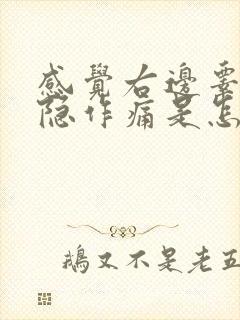 感覺右邊
隐作痛是怎
鵝又不是老五